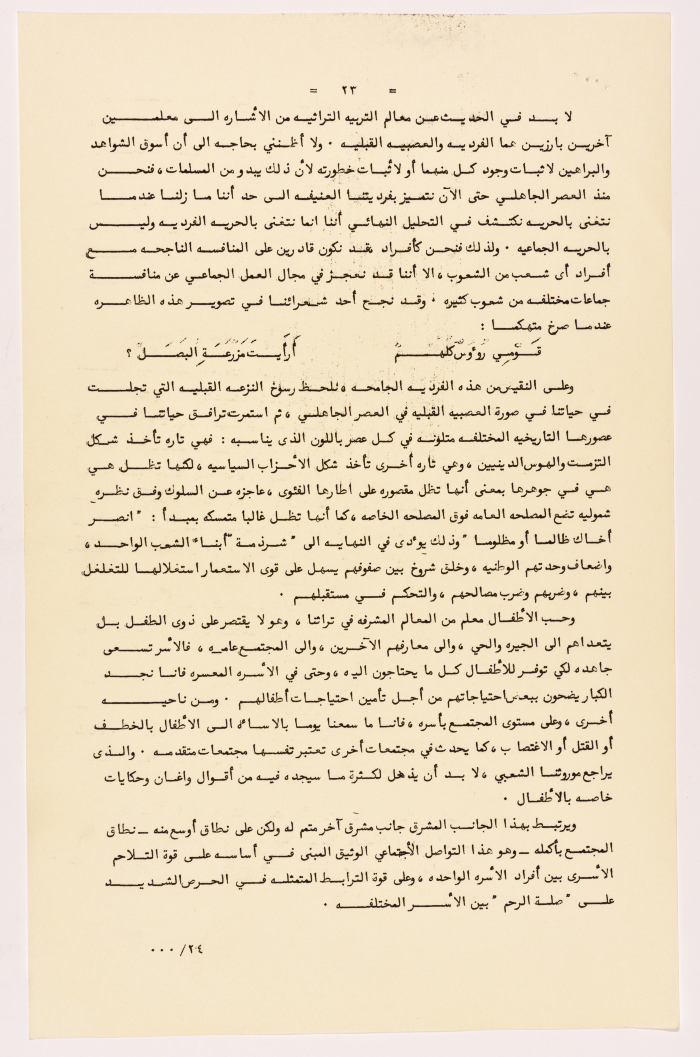 = ٢٣ =
لا بد في الحديث عن معالم التربيه التراثيه من الأشاره الى معلمين
آخرين بارزين هما الفرديه والعصبيه القبليه ٠ ولا أظنني بحاجه الى أن أسوق الشواهد
والبراهين لاثبات وجود كل منهما أو لاثبات خطورته لأن ذلك يبدو من المسلمات ، فنحن
منذ العصر الجاهلي حتى الآن نتميز بفرديتنا العنيفه الى حد أننا ما زلنا عندما
نتغنى بالحريه نكتشف في التحليل النهائي أننا انما نتغنى بالحريه الفرديه وليس
بالحريه الجماعيه ٠ ولذلك فنحن كأفراد نقد نكون قادرين على المنافسه الناجحه مع
أفراد أى شعب من الشعوب ، الا أننا قد نعجز في مجال العمل الجماعي عن منافسة
جماعات مختلفه من شعوب كثيره ٠ وقد نجح أحد شعرائنا في تصوير هذه الظاهره
عندما صرخ متهكما :
قَومِي رُؤوسٌ كُلُّهُمُ أَرَأَيتَ مَزرَعَةَ البَصَل ؟
وعلى النقيض من هذه الفرديه الجامحه ، نلحظ رسوخ النزعه القبليه التي تجلت
في حياتنا في صورة العصبيه القبليه في العصر الجاهلي ، ثم استمرت ترافق حياتنا في
عصورها التاريخيه المختلفه متلونه في كل عصر باللون الذى يناسبه : فهي تاره تأخذ شكل
التزمت والهوس الدينيين ، وهي تاره أخرى تأخذ شكل الأحزاب السياسيه ، لكنها تظل هي
هي في جوهرها بمعنى أنها تظل مقصوره على اطارها الفئوى ، عاجزه عن السلوك وفق نظره
شموليه تضع المصلحه العامه فوق المصلحه الخاصه ، كما أنها تظل غالبا متمسكه بمبدأ : " انصر
أخاك ظالما أو مظلوما " وذلك يؤدى في النهايه الى " شرذمة " أبناء الشعب الواحد ،
واضعاف وحدتهم الوطنيه ، وخلق شروخ بين صفوفهم يسهل على قوى الاستعمار استغلالها للتغلغل
بينهم ، وضربهم وضرب مصالحهم ، والتحكم في مستقبلهم ٠
وحب الأطفال معلم من المعالم المشرفه في تراثنا ، وهو لا يقتصر على ذوى الطفل بل
يتعداهم الى الجيره والحي ، والى معارفهم الآخرين ، والى المجتمع عامه ، فالأسر تسعى
جاهده لكي توفر للأطفال كل ما يحتاجون اليه ، وحتى في الأسره المعسره فاننا نجد
الكبار يضحون ببعض احتياجاتهم من أجل تأمين احتياجات أطفالهم ٠ ومن ناحيه
أخرى ، وعلى مستوى المجتمع بأسره ، فاننا ما سمعنا يوما بالاساءه الى الأطفال بالخطف
أو القتل أو الاغتصاب ، كما يحدث في مجتمعات أخرى تعتبر نفسها مجتمعات متقدمه ٠ والذى
يراجع موروثنا الشعبي ، لا بد أن يذهل لكثرة ما سيجده فيه من أقوال واغان وحكايات
خاصه بالأطفال ٠
ويرتبط بهذا الجانب المشرق جانب مشرق آخر متمم له ولكن على نطاق أوسع منه ــ نطاق
المجتمع بأكمله ــ وهو هذا التواصل الأجتماعي الوثيق المبنى في أساسه على قوة التلاحم
الأسرى بين أفراد الأسره الواحده ، وعلى قوة الترابط المتمثله في الحرص الشديد
على " صلة الرحم " بين الأسر المختلفه ٠
٠٠٠ /٢٤